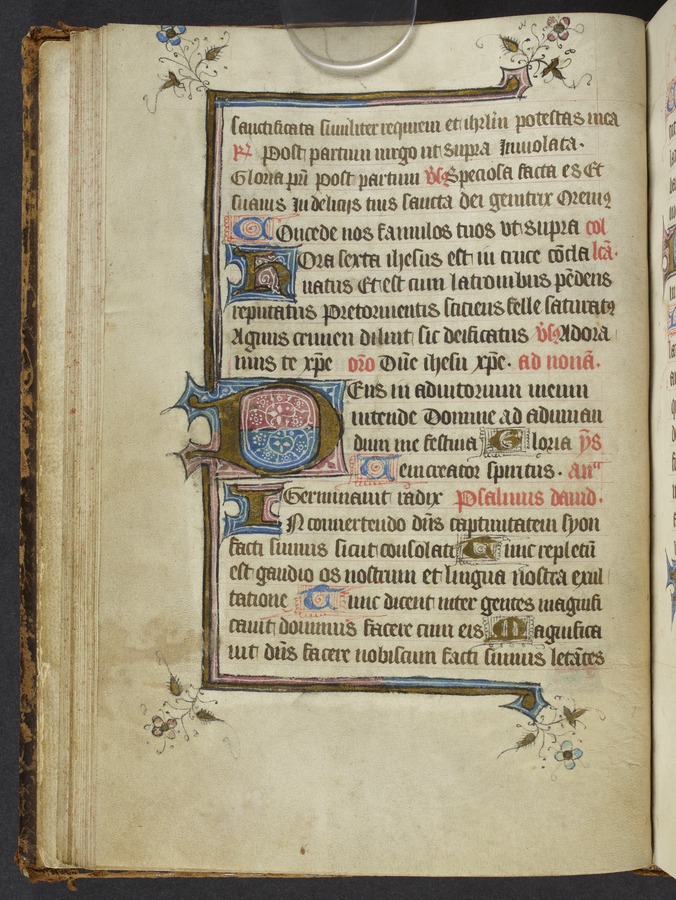 sanctificata similiter requieui et ihrlm potestas mea
R Post partum uirgo ut supra Inuiolata.
Gloria pri post partum vs Speciosa facta es Et
suauis In delicijs tuis sancta dei genitrix Oremus
Concede nos famulos tuos vt supra col
Hora sexta ihesus est in cruce cōcla lcā.
uatus Et est cum latronibus pēdens
reputatus Pretormentis siciens felle saturatus
Agnus crimen diluit sic deificatus vs Adora
mus te xpe oro Dūe ihesu xpe. ad nonā.
Deus in adiutorium meum
intende Domine ad adiuuan
dum me festina Gloria ys
Veni creator spiritus. an
Germinauit radix Psalmus dauid.
IN conuertendo dn̄s captiuitatem syon
facti sumus sicut consolati Tunc repletū
est gaudio os nostrum et lingua nostra exul
tatione Tunc dicent inter gentes magnifi
cauit dominus facere cum eis Magnifica
uit dn̄s facere nobiscum facti sumus letātes